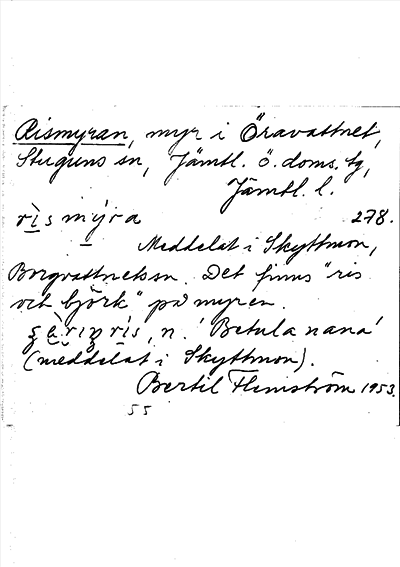 Rismyran, myr i Öravattnet,
Stuguns sn, Jämtl. ö. doms. tg,
Jämtl. l.
rìs mýra 278.
Meddelat i Skyttmon,
Borgvattnets sn. Det finns "ris
och björk" på myren.
rís, n. 'Betula nana'
(meddelat i Skyttmon).
Bertil Flemström 1953.
55